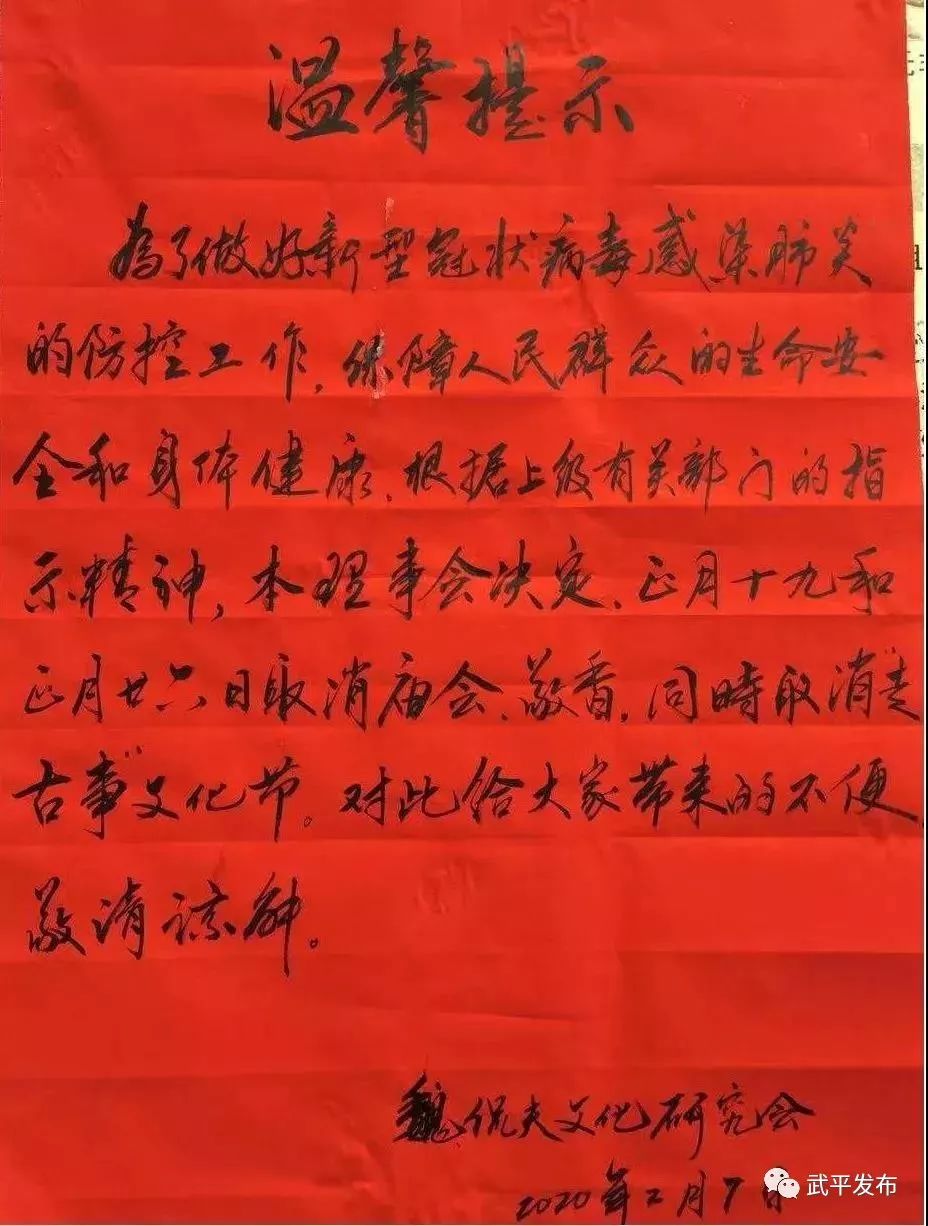 温馨提示
為了做好新型冠状病毒感染肺炎
的防控工作，保障人民群众的生命安
全和身体健康、根据上级有关部门的指
示精神，本理事会决定、正月十九和
正月廿六日取消庙会、敬香，同時取消"走
古事"文化节。对此给大家带来的不便，
敬请谅解。
魏侃夫文化研究会
2020年2月7日
武平发布